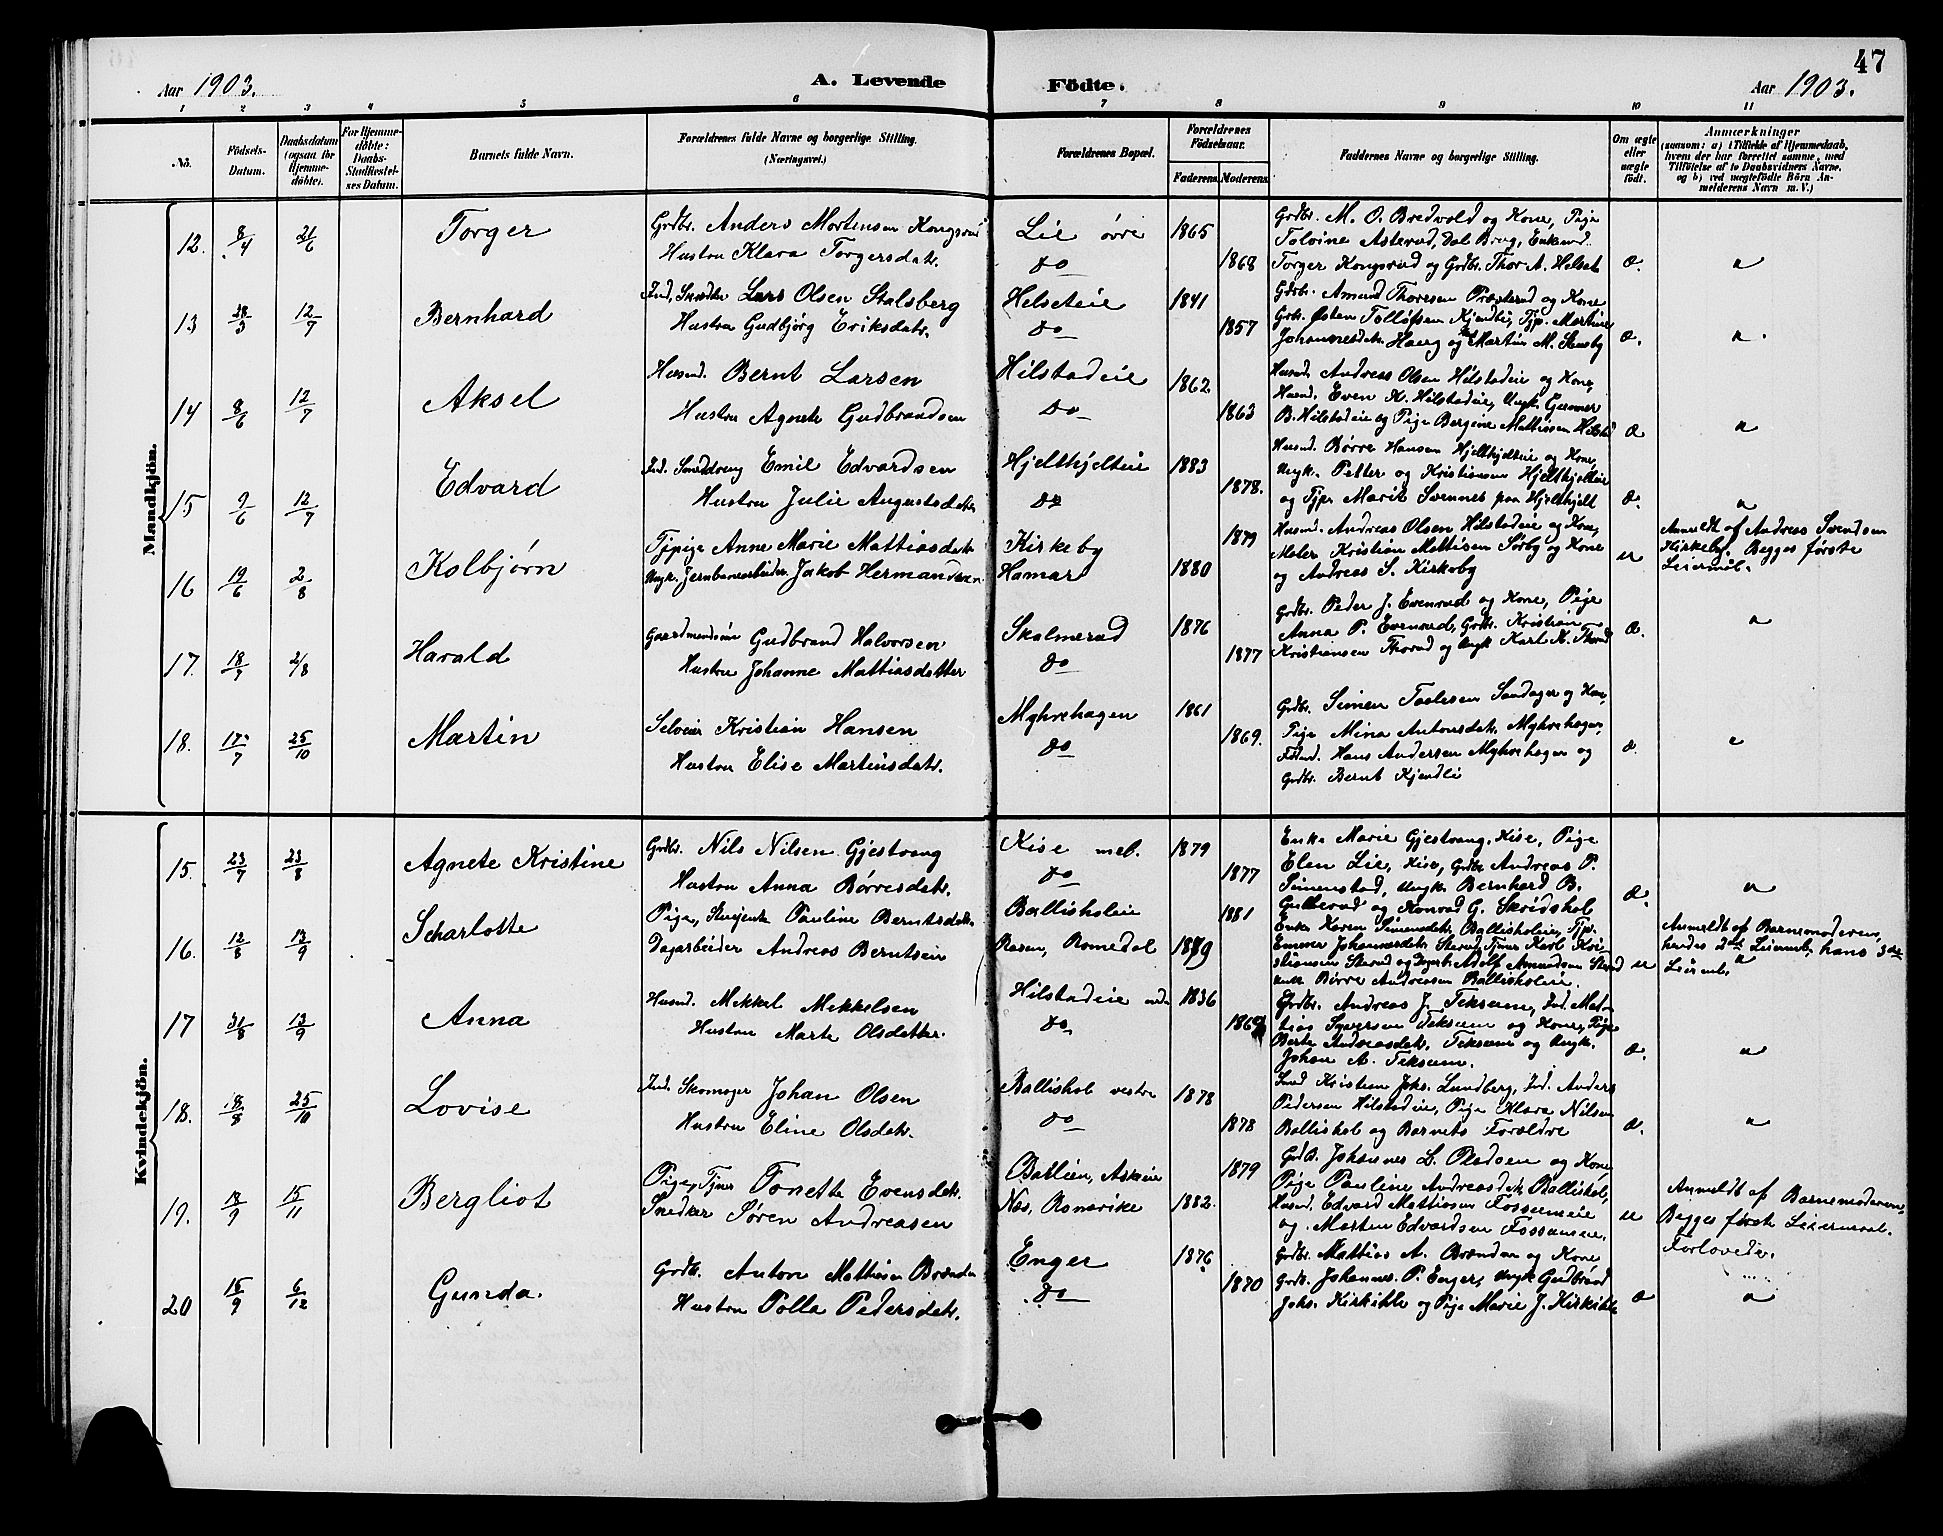 47
Aar 1903.
A. Levende Födte.
Aar 1903.
1 2 3 4 5 6 7 8 9 10 11
No.
Födsels-Datum.
Daabsdatum (ogsaa for Hjemme-döbte).
For Hjemme-döbte: Daabs-Stadfæstel-ses Datum.
Barnets fulde Navn.
Forældrenes fulde Navne og borgerlige Stilling. (Næringsvei.)
Forældrenes Bopæl.
Forældrenes Födselsaar.
Faderens. Moderens.
Faddernes Navne og borgerlige Stilling.
Om ægte eller uægte födt.
Anmærkninger
(saasom: a) i Tilfælde af Hjemmedaab, hvem der har forrettet samme, med Tilföielse af to Daabsvidners Navne, og b) ved uægtefödte Börn An-melderens Navn m. V.)
Mandkjön.
12. 8/4 21/6 Torger
Grdbr. Anders Mortensen Kongsrud
Hustru Klara Torgersdatr.
Lie övre
do
1865 1868
Grdbr. M. O. Bredvold og Kone, Pige
Tolvine Asterud, Dal Brug, Enkemd.
Torger Kongsrud og Grdbr. Thor A. Helset
æ. "
13 28/3 12/7 Bernhard
Ind. Snedker Lars Olsen Stalsberg
Hustru Gudbjörg Eriksdatr.
Helseteie
do
1841 1857
Grdbr. Amund Thoresen Præsterud og Kone
Grdb. Østen Tollefsen Kjendli, Tjp. Martine
Johannesdatr. Haug og Martin M. Stensby
æ. "
14 8/6 12/7 Aksel
Husmd. Bernt Larsen
Hustru Agnete Gudbrandsen
Hilstadeie
do
1862. 1863
Husmd. Andreas Olsen Hilstadeie og Kone,
Husmd. Even K. Hilstadeie, Ungk. Gunner
B. Hilstadeie og Pige Bergine Mathisen Hilstad
æ "
15 9/6 12/7 Edvard
Ind. Smeddreng Emil Edvardsen
Hustru Julie Augustsdatr
Hjelthjelteie
do
1883 1878.
Husmd. Børre Hansen Hjelthjelteie og Kone,
Ungk. Petter og Kristiansen Hjelthjelteie
og Tjp. Marie Svennes paa Hjelthjelt
æ. "
16 19/6 2/8 Kolbjørn
Tjpige Anne Marie Mattiasdatr
Ungk. Jernbanearbeider Jakob Hermandsen
Kirkeby
Hamar
1879 1880
Husmd. Andreas Olsen Hilstadeie og Kone,
Maler Kristian Mattisen Sørby og Kone
og Andreas S. Kirkeby
u
Anmeldt af Andreas Svendsen
Kirkeby. Begges første
Leiermål.
17. 18/7 2/8 Harald
Gaardmandssøn Gudbrand Halvorsen
Hustru Johanne Mattiasdatter
Skalmerud
do
1876 1877
Grdbr. Peder J. Evenrud og Kone, Pige
Anna P. Evenrud, Grdbr. Kristian
Kristiansen Thorud og Ungk Karl K. Thorud
æ. "
18. 17/7 25/10 Martin
Selveier Kristian Hansen
Hustru Elise Martinsdatr.
Myhrehagen
do
1861 1869.
Grdbr. Simen Taalesen Sandager og Kone,
Pige Mina Antonsdatr. Myhrehagen,
Hans Andersen Myhrehagen og
Grdbr. Bernt Kjendli
æ. "
Kvindekjön.
15. 23/7 23/8 Agnete Kristine
Grdbr. Nils Nilsen Gjestvang
Hustru Anna Børresdatr.
Kise mel.
do
1879 1877
Enke Marie Gjestvang, Kise, Pige
Elen Lie, Kise, Grdbr Andreas P.
Simenstad, Ungk. Bernhard B.
Gulkerud og Konrad G. Skridshol
æ. "
16. 12/8 13/9 Scharlotte
Pige, Stuejente Pauline Berntsdatr.
Dagarbeider Andreas Berntsen
Ballisholeie
Romedal
1881 1879
Enke Karen Simensdatr. Ballisholeie, Tjp.
Emma Johannesdatr. Sterud, Tjener Karl Kri-
stiansen Sterud og Dagarb. Adolf Amundsen Sterud
Ungk Børre Andreassen Ballisholeie.
u
Anmeldt af Barnemoderen,
hendes 2det Leiermål, hans 3die
Leiermål.
17 31/8 13/9 Anna
Husmd. Mekkel Mekkelsen
Hustru Marte Olsdatter.
Hilstadeie
do
1836
Grdbr. Andreas J. Teksum, Ind. Mat-
tias Syversen Teksum og Kone, Pige
Berte Andreasdatr. Teksum og Ungk.
Johan A. Teksum.
æ. "
18. 18/8 25/10 Lovise
Ind. Skomager Johan Olsen
Hustru Eline Olsdatr.
Ballishol vestre
do
1878 1878
Ind Kristian Johs. Lundberg, Ind. Anders
Pedersen Hilstadeie, Pige Klara Nilsen
Ballishol og Barnets Forældre
æ. "
19. 13/9 15/11 Bergliot
Pige, Tjener Tonette Evensdatr.
Snedker Søren Andreasen
Batlien, Askeie
Nes, Romerike
1879 1882.
Grdb. Johannes L. Olsdsen og Kone,
Pige Pauline Andreasdatr. Ballishol,
Husmd. Edvard Mattiasen Fossumeie
og Morten Edvardsen Fossumeie.
u
Anmeldt af Barnemoderen.
Begges første Leiermaal.
Forlovede.
20 15/9 6/12 Gunda.
Grdb. Anton Mathisen Brænden
Hustru Polla Pedersdatr.
Enger
do
1876 1870
Grdbr. Mattias A. Brænden og Kone
Grdb. Johannes P. Enger, Ungk Gudbrand
Johs. Kirkihle og Pige Marie J. Kirkihle
æ "